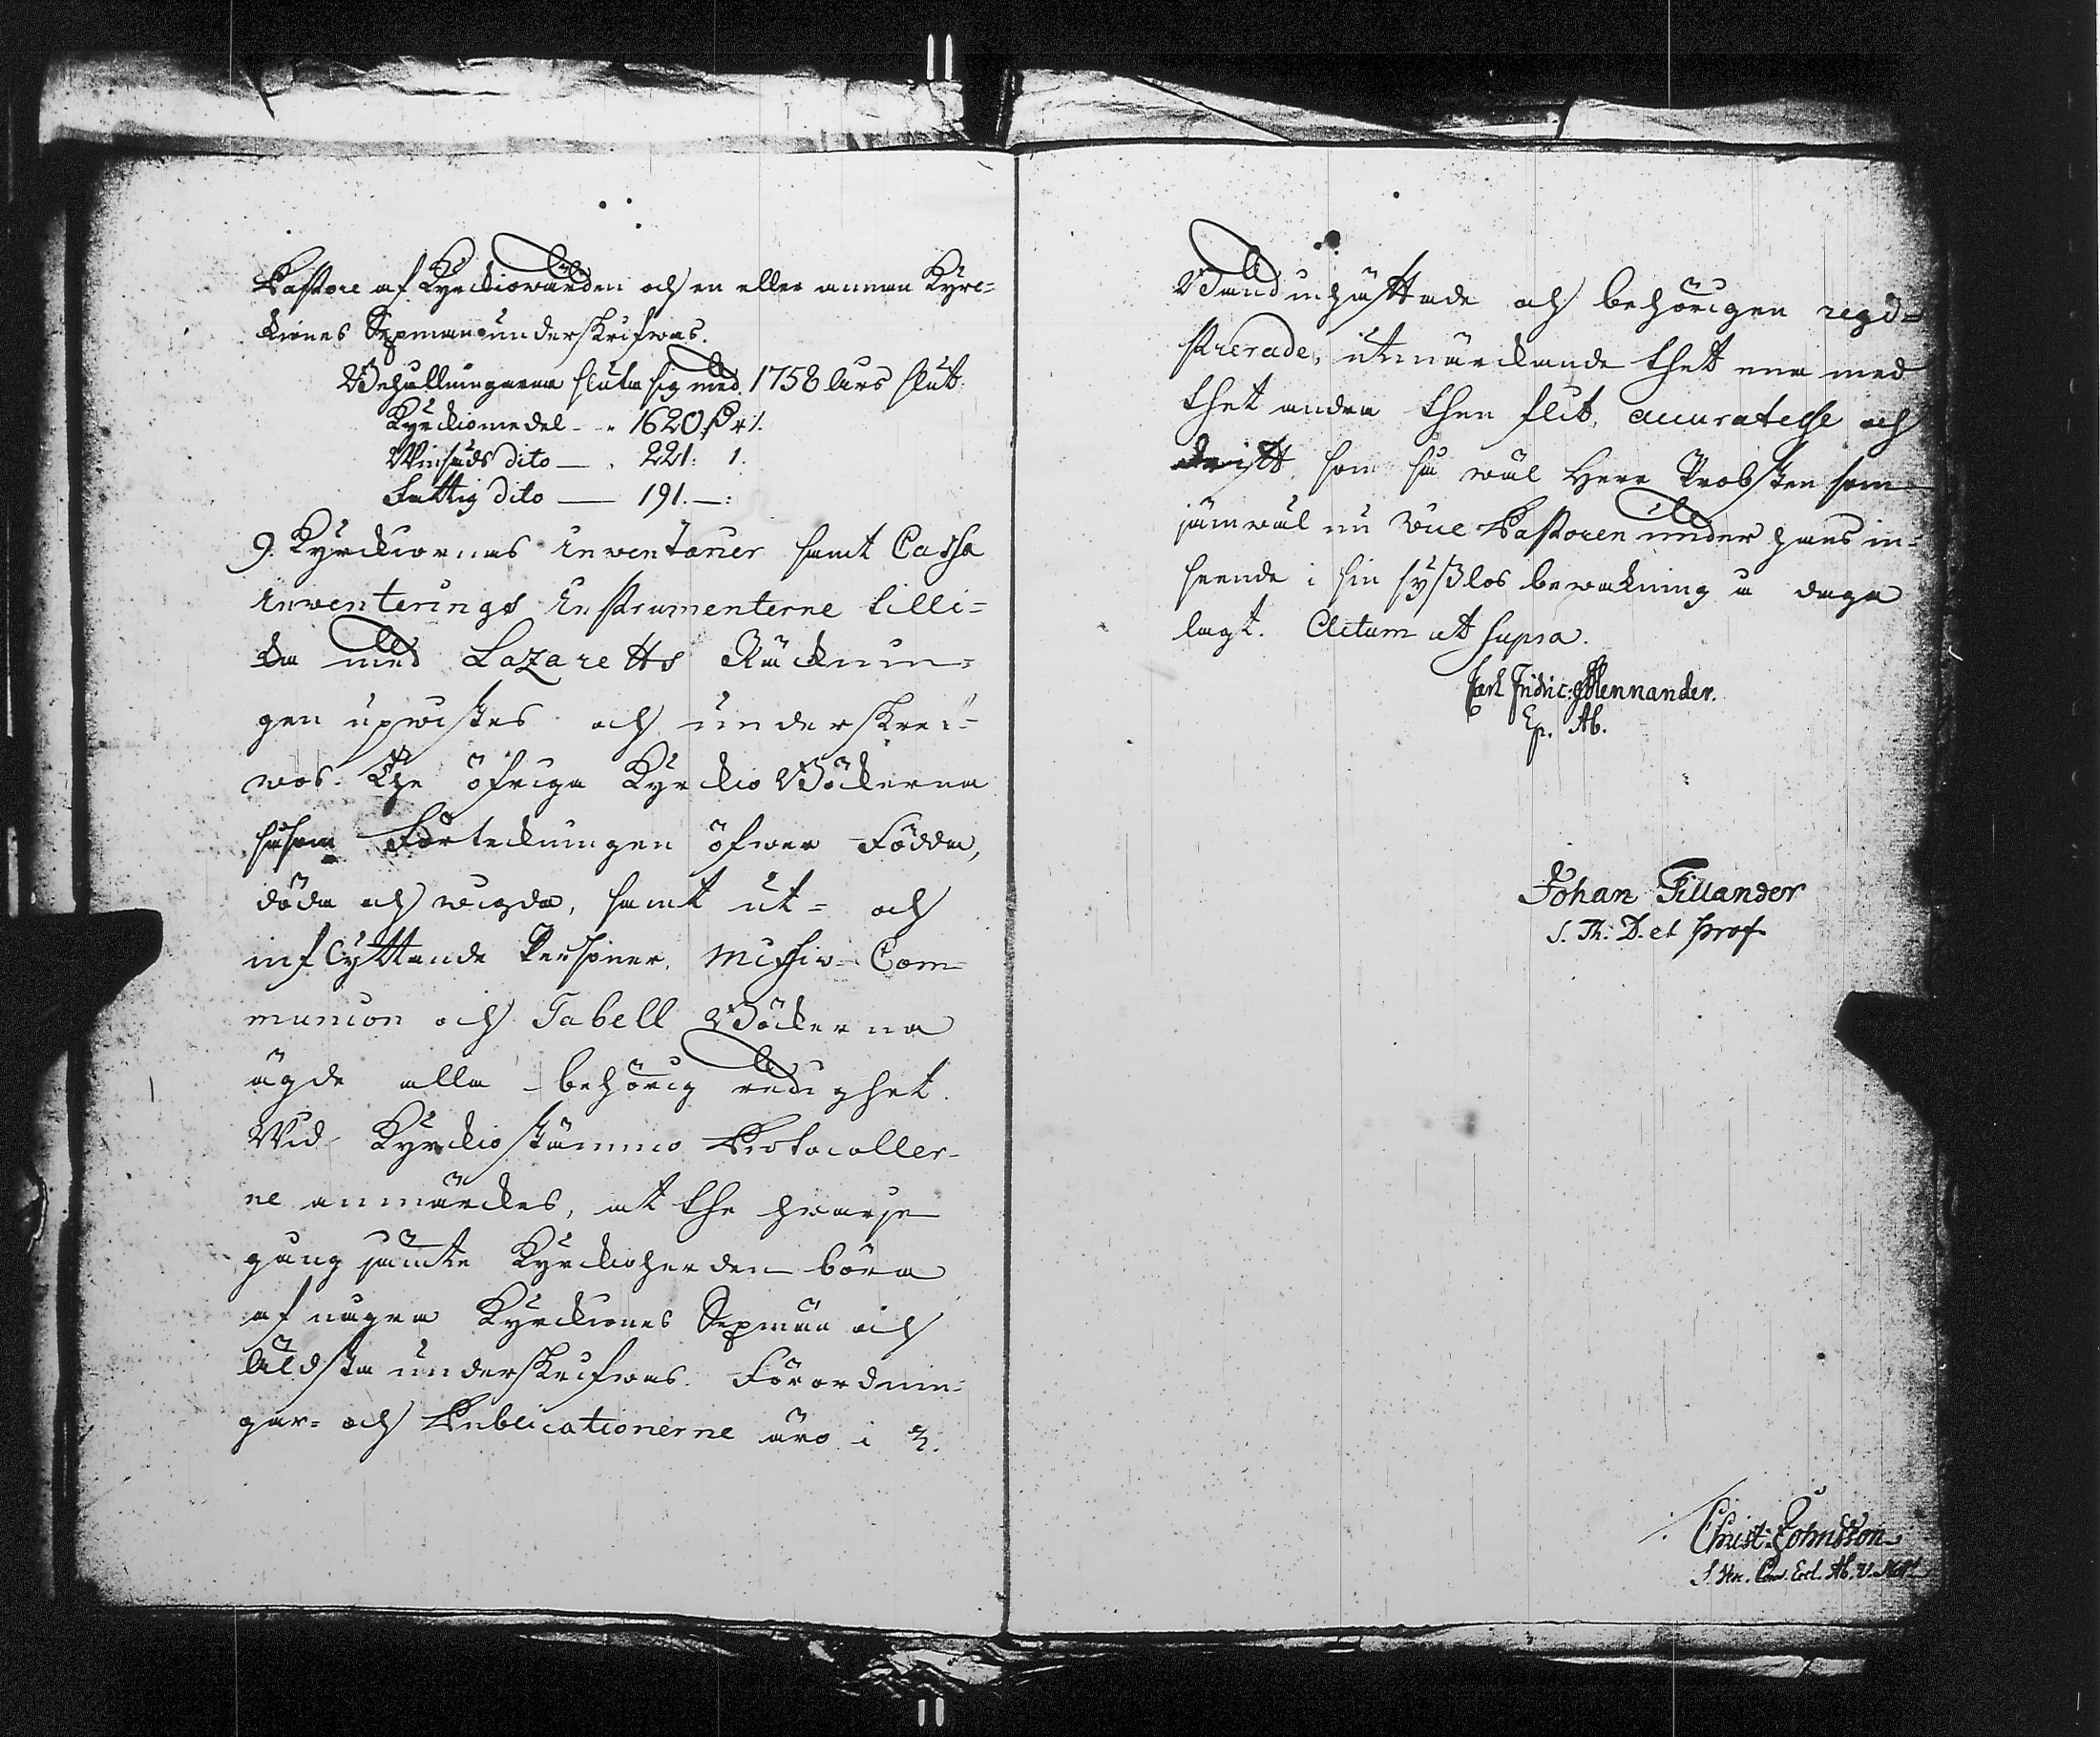 Pastore af Kyrckiowärden och en eller annan Kyrc-
kiones Sexman underskrifwas.
Behållningarna sluta sig med 1758 Års slut
Kyrckiomedel - - 1620. 
Winsäds dito — . 221: 1.
Fattig dito — 191. —:
9. Kyrckiornas Inventarier samt Cassa
Inventerings Instrumenterne tilli-
ka med Lazaretts Räcknin-
gen upwistes och underskref-
wos. The öfriga Kyrckio Böckerna
såsom Förteckningen öfwer Födda,
döda och wigda, samt ut- och
inflyttande Personer, Missiv- Com-
munion och Tabell Böckerna
ägde alla behörig redighet.
Wid Kyrckiostämmo Protocoller-
ne anmärckes, at the hwarje
gång jämte Kyrckioherden böra
af några Kyrckiones Sexmän och
Äldsta underskrifwas. Förordnin-
gar- och Publicationerne äro i 3.
Band inhäfttade och behörigen regi-
strerade, utmärckande thet ena med
thet andra then flit, accuratesse och
drift, som så wäl Herr Probsten som
jämwäl nu Vice Pastoren under hans in-
seende i sin sysslos bewakning å daga
lagt. Actum ut supra.
Carl Fridric Mennander.
Ep. Ab.
Johan Tillander
S. Th. D. et Prof.
Christ: Johnsson
S. Ven. Cons. Eccl. Ab. V. Not.